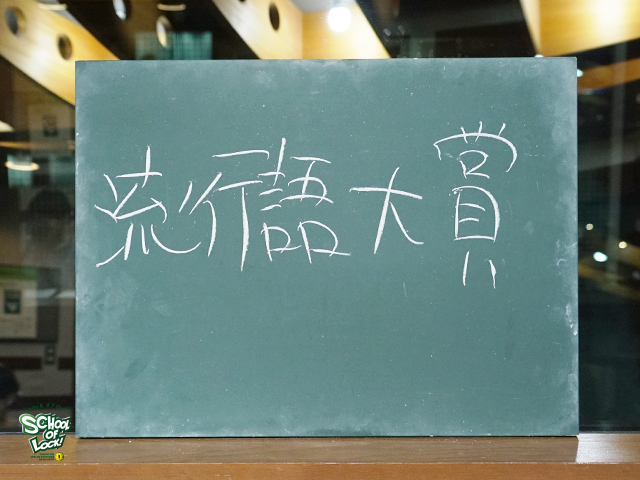 流行語大賞
SCHOOL
OF
LOCK!